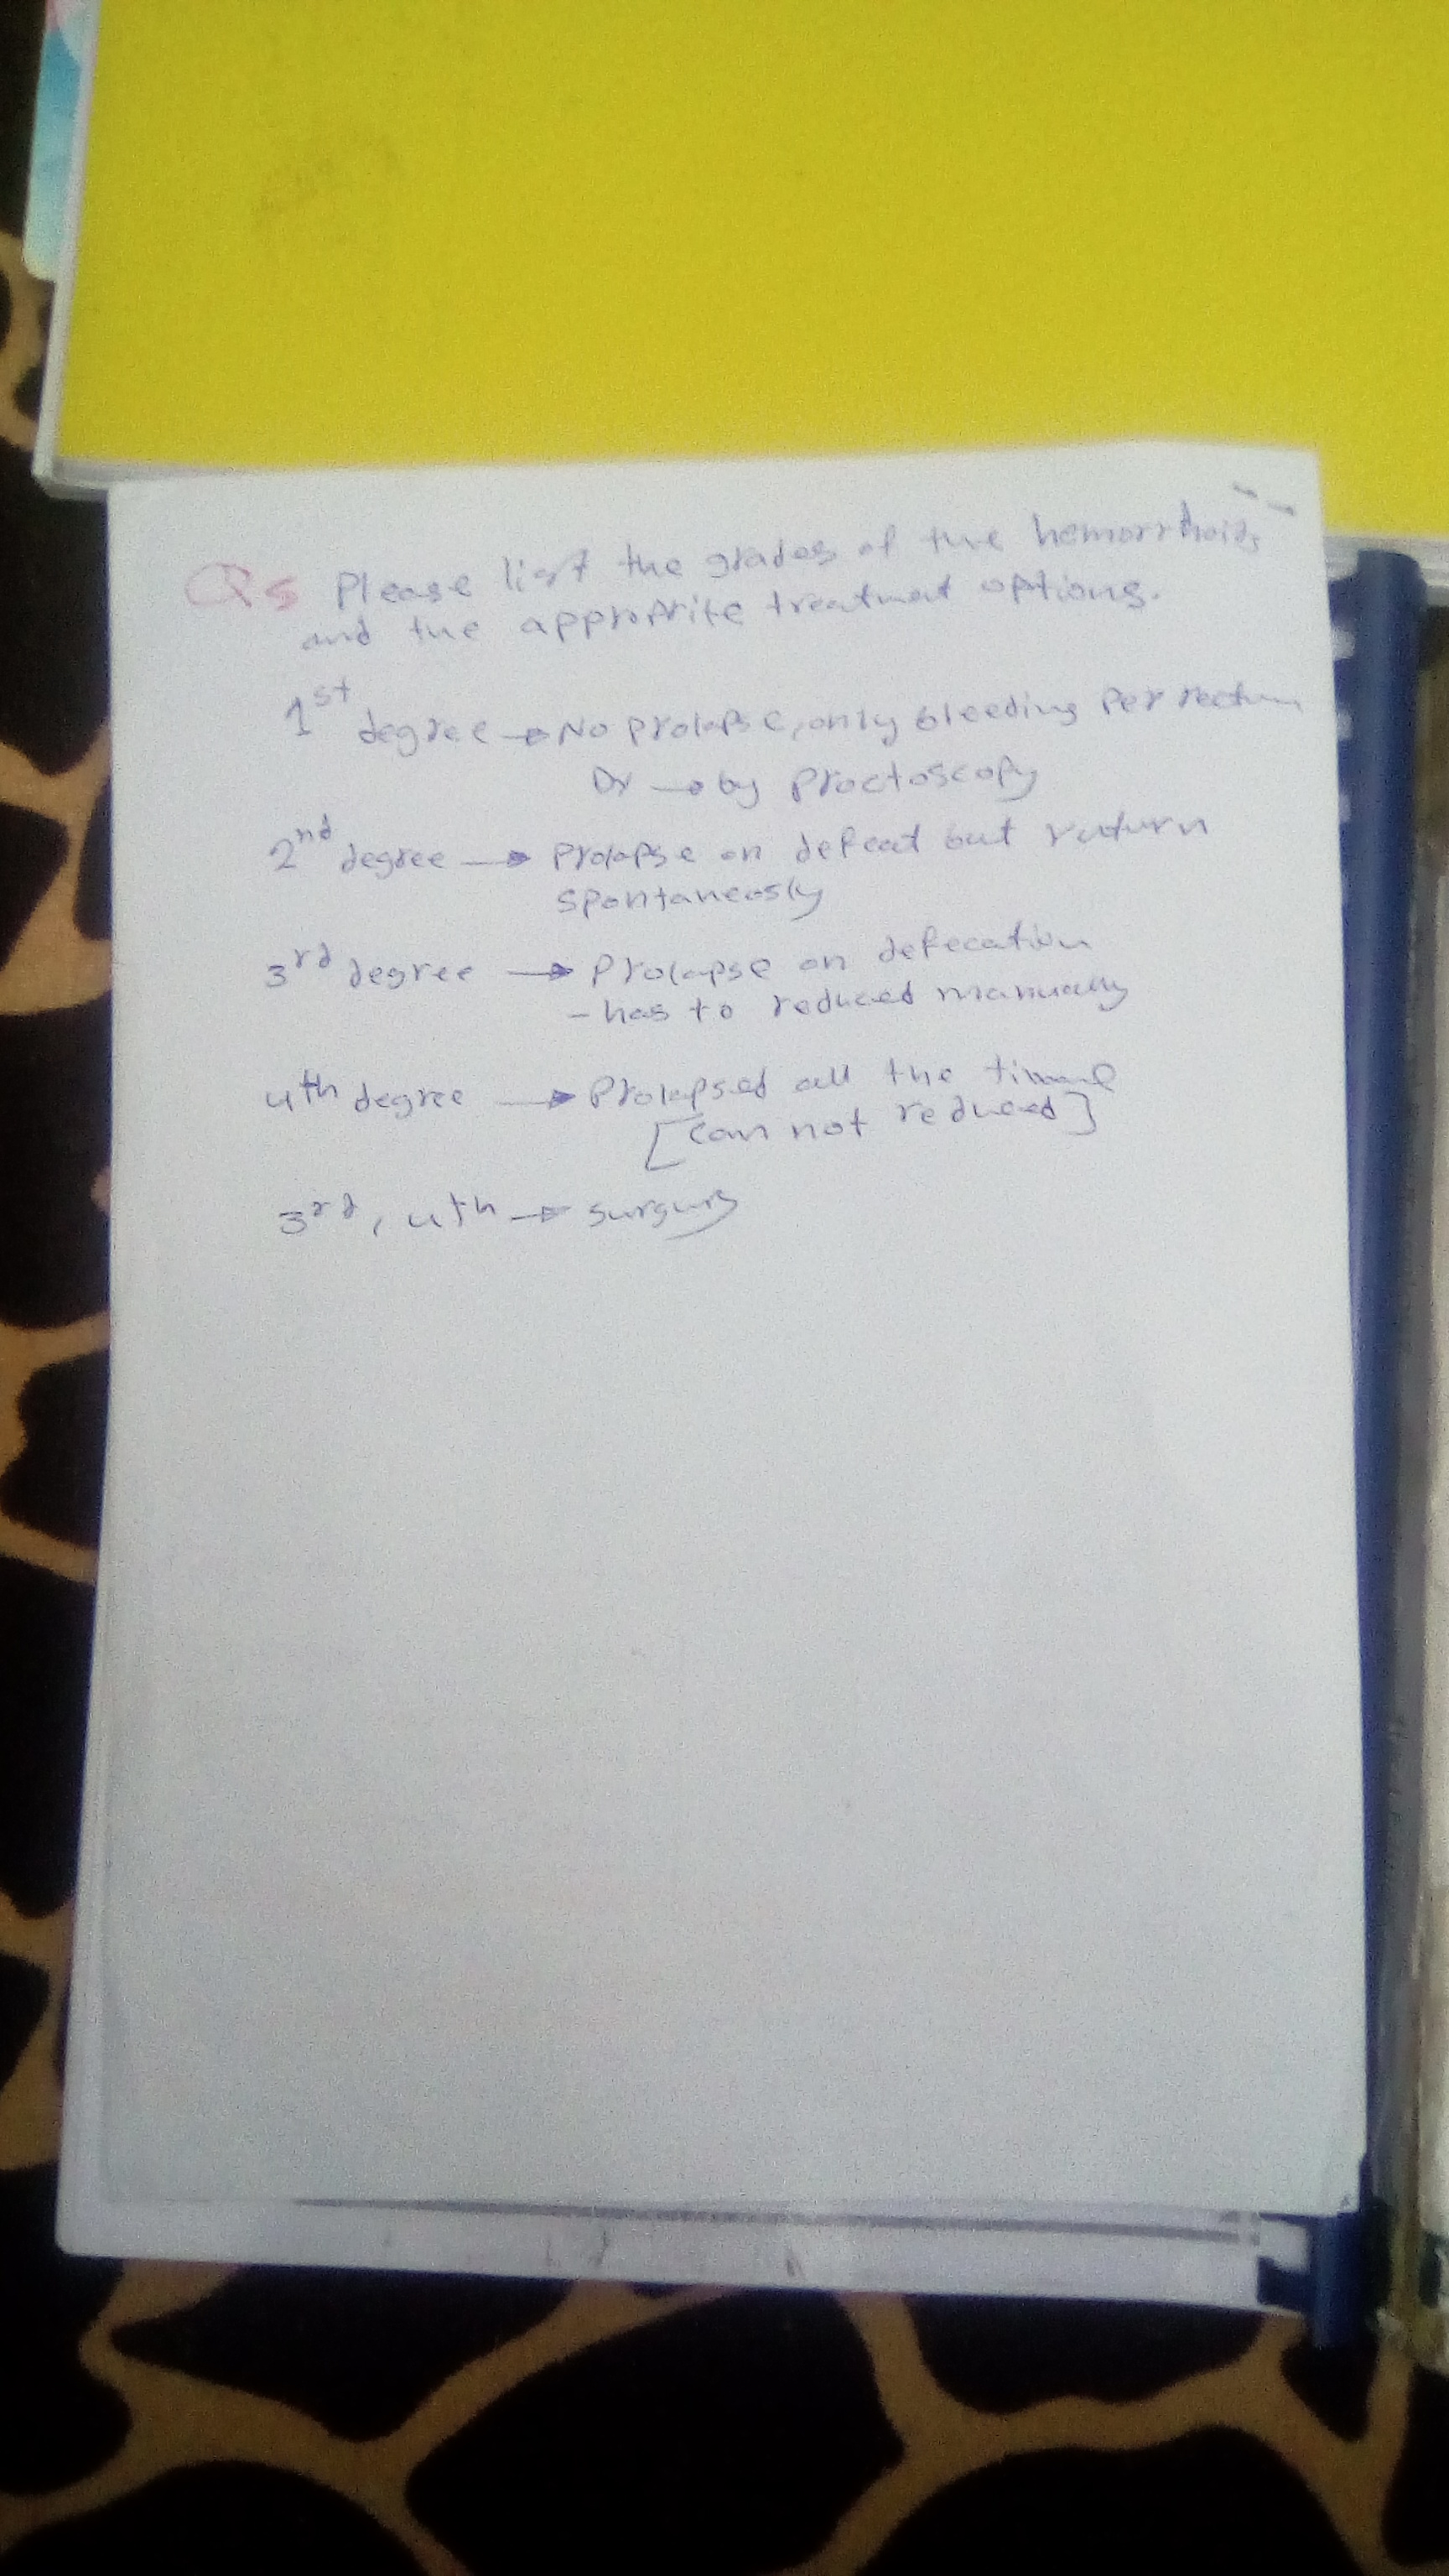 Q5 Please list the grades of the hemorrhoids
and the approprite treatment options.
1st degree → No prolapse, only bleeding per rectum
Dx → by proctoscopy
2nd degree → prolapse on defecat but return
spontaneosly
3rd degree → Prolapse on defecation
- has to reduced manually
4th degree → Prolapsed all the time
[can not reduced]
3rd, 4th → surgury